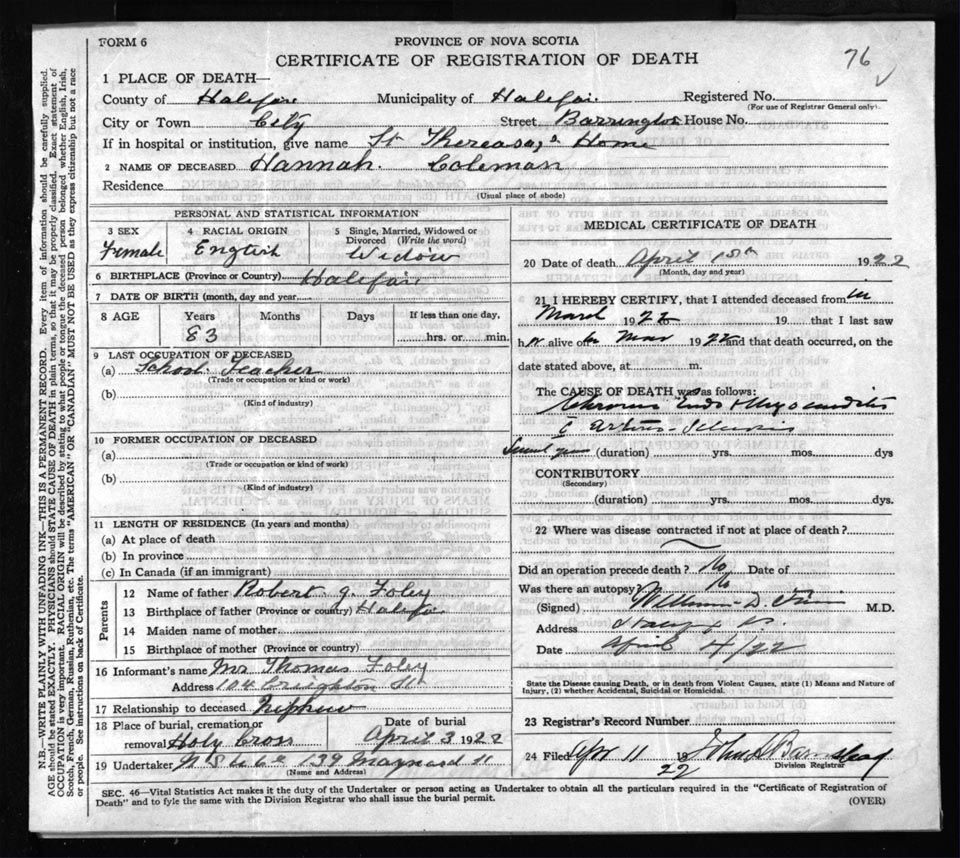 FORM 6
PROVINCE OF NOVA SCOTIA
CERTIFICATE OF REGISTRATION OF DEATH
76
1 PLACE OF DEATH—
County of Halifax Municipality of Halifax Registered No.
(For use of Registrar General only)
City or Town City Street Barrington House No.
If in hospital or institution, give name St Thereasa,s Home
2 NAME OF DECEASED Hannah. Coleman
Residence
(Usual place of abode)
PERSONAL AND STATISTICAL INFORMATION
3 SEX Female
4 RACIAL ORIGIN English
5 Single, Married, Widowed or Divorced (Write the word) Widow
6 BIRTHPLACE (Province or Country) Halifax
7 DATE OF BIRTH (month, day and year)
8 AGE Years Months Days If less than one day,
83 hrs. or min.
9 LAST OCCUPATION OF DECEASED
(a) School. Teacher
(Trade or occupation or kind or work)
(b)
(Kind of industry)
10 FORMER OCCUPATION OF DECEASED
(a)
(Trade or occupation or kind of work)
(b)
(Kind of industry)
11 LENGTH OF RESIDENCE (In years and months)
(a) At place of death
(b) In province
(c) In Canada (if an immigrant)
Parents
12 Name of father Robert J. Foley
13 Birthplace of father (Province or country) Halifax
14 Maiden name of mother
15 Birthplace of mother (Province or country)
16 Informant's name Mr Thomas Foley
Address 104 Creighton St
17 Relationship to deceased Nephew
18 Place of burial, cremation or removal Holy Cross
Date of burial April 3 1922
19 Undertaker 139 Maynard
(Name and Address)
MEDICAL CERTIFICATE OF DEATH
20 Date of death April 1st 1922
(Month, day and year)
21 I HEREBY CERTIFY, that I attended deceased from in
March 1922 to 19 that I last saw
her alive on Mar 1922 and that death occurred, on the
date stated above, at m.
The CAUSE OF DEATH was as follows:
Chronic Endo & Myocarditis
c Arterio-Sclerosis
Several years (duration) yrs. mos. dys
CONTRIBUTORY
(Secondary)
(duration) yrs. mos. dys.
22 Where was disease contracted if not at place of death?
Did an operation precede death? No Date of
Was there an autopsy? No
(Signed) William D. M.D.
Address
Date April 4/22
State the Disease causing Death, or in death from Violent Causes, state (1) Means and Nature of Injury, (2) whether Accidental, Suicidal or Homicidal.
23 Registrar's Record Number
24 Filed Apr 11 19 22 John Barnstead
Division Registrar
SEC. 46—Vital Statistics Act makes it the duty of the Undertaker or person acting as Undertaker to obtain all the particulars required in the "Certificate of Registration of
Death" and to fyle the same with the Division Registrar who shall issue the burial permit.
(OVER)
N.B.—WRITE PLAINLY WITH UNFADING INK—THIS IS A PERMANENT RECORD. Every item of information should be carefully supplied.
AGE should be stated EXACTLY. PHYSICIANS should STATE CAUSE OF DEATH in plain terms, so that it may be properly classified. Exact statement of
OCCUPATION is very important. RACIAL ORIGIN will be described by stating to what people or tongue the deceased person belonged, whether English, Irish,
Scotch, French, German, Russian, Ruthenian, etc. The terms "AMERICAN" OR "CANADIAN" MUST NOT BE USED as they express citizenship but not a race
or people. See instructions on back of Certificate.